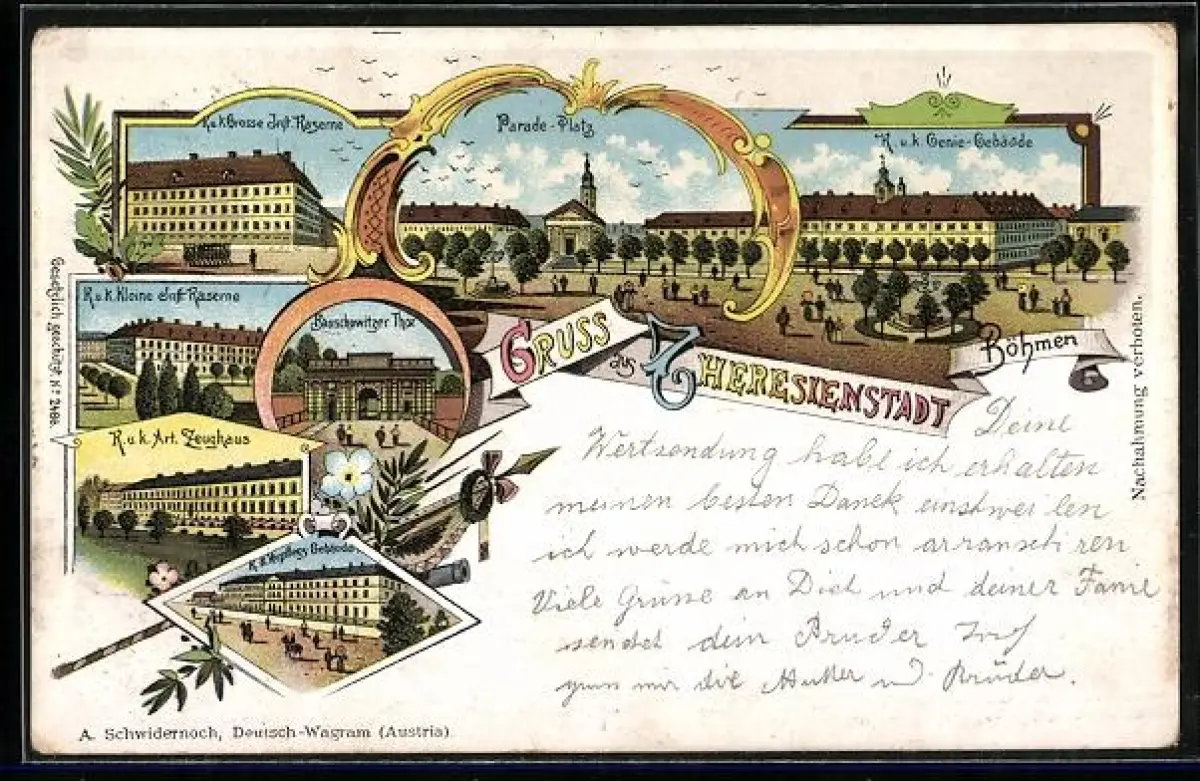 K. u. k. Grosse Inft. Kaserne
Parade-Platz
K. u. k. Genie-Gebäude
K. u. k. Kleine Inft. Kaserne
Bauschowitzer Thor
K. u. k. Art. Zeughaus
K. u. k. Verpflegs Gebäude
GRUSS
aus THERESIENSTADT
Böhmen
Gesetzlich geschützt No. 2486.
Nachahmung verboten.
Deine
Wertsendung habe ich erhalten
meinen besten Danek einstweilen
ich werde mich schon arranschiren
Viele Grüsse an Dich und deiner Famie
sendet dein Bruder
die Mutter Brüder.
A. Schwidernoch, Deutsch-Wagram (Austria)